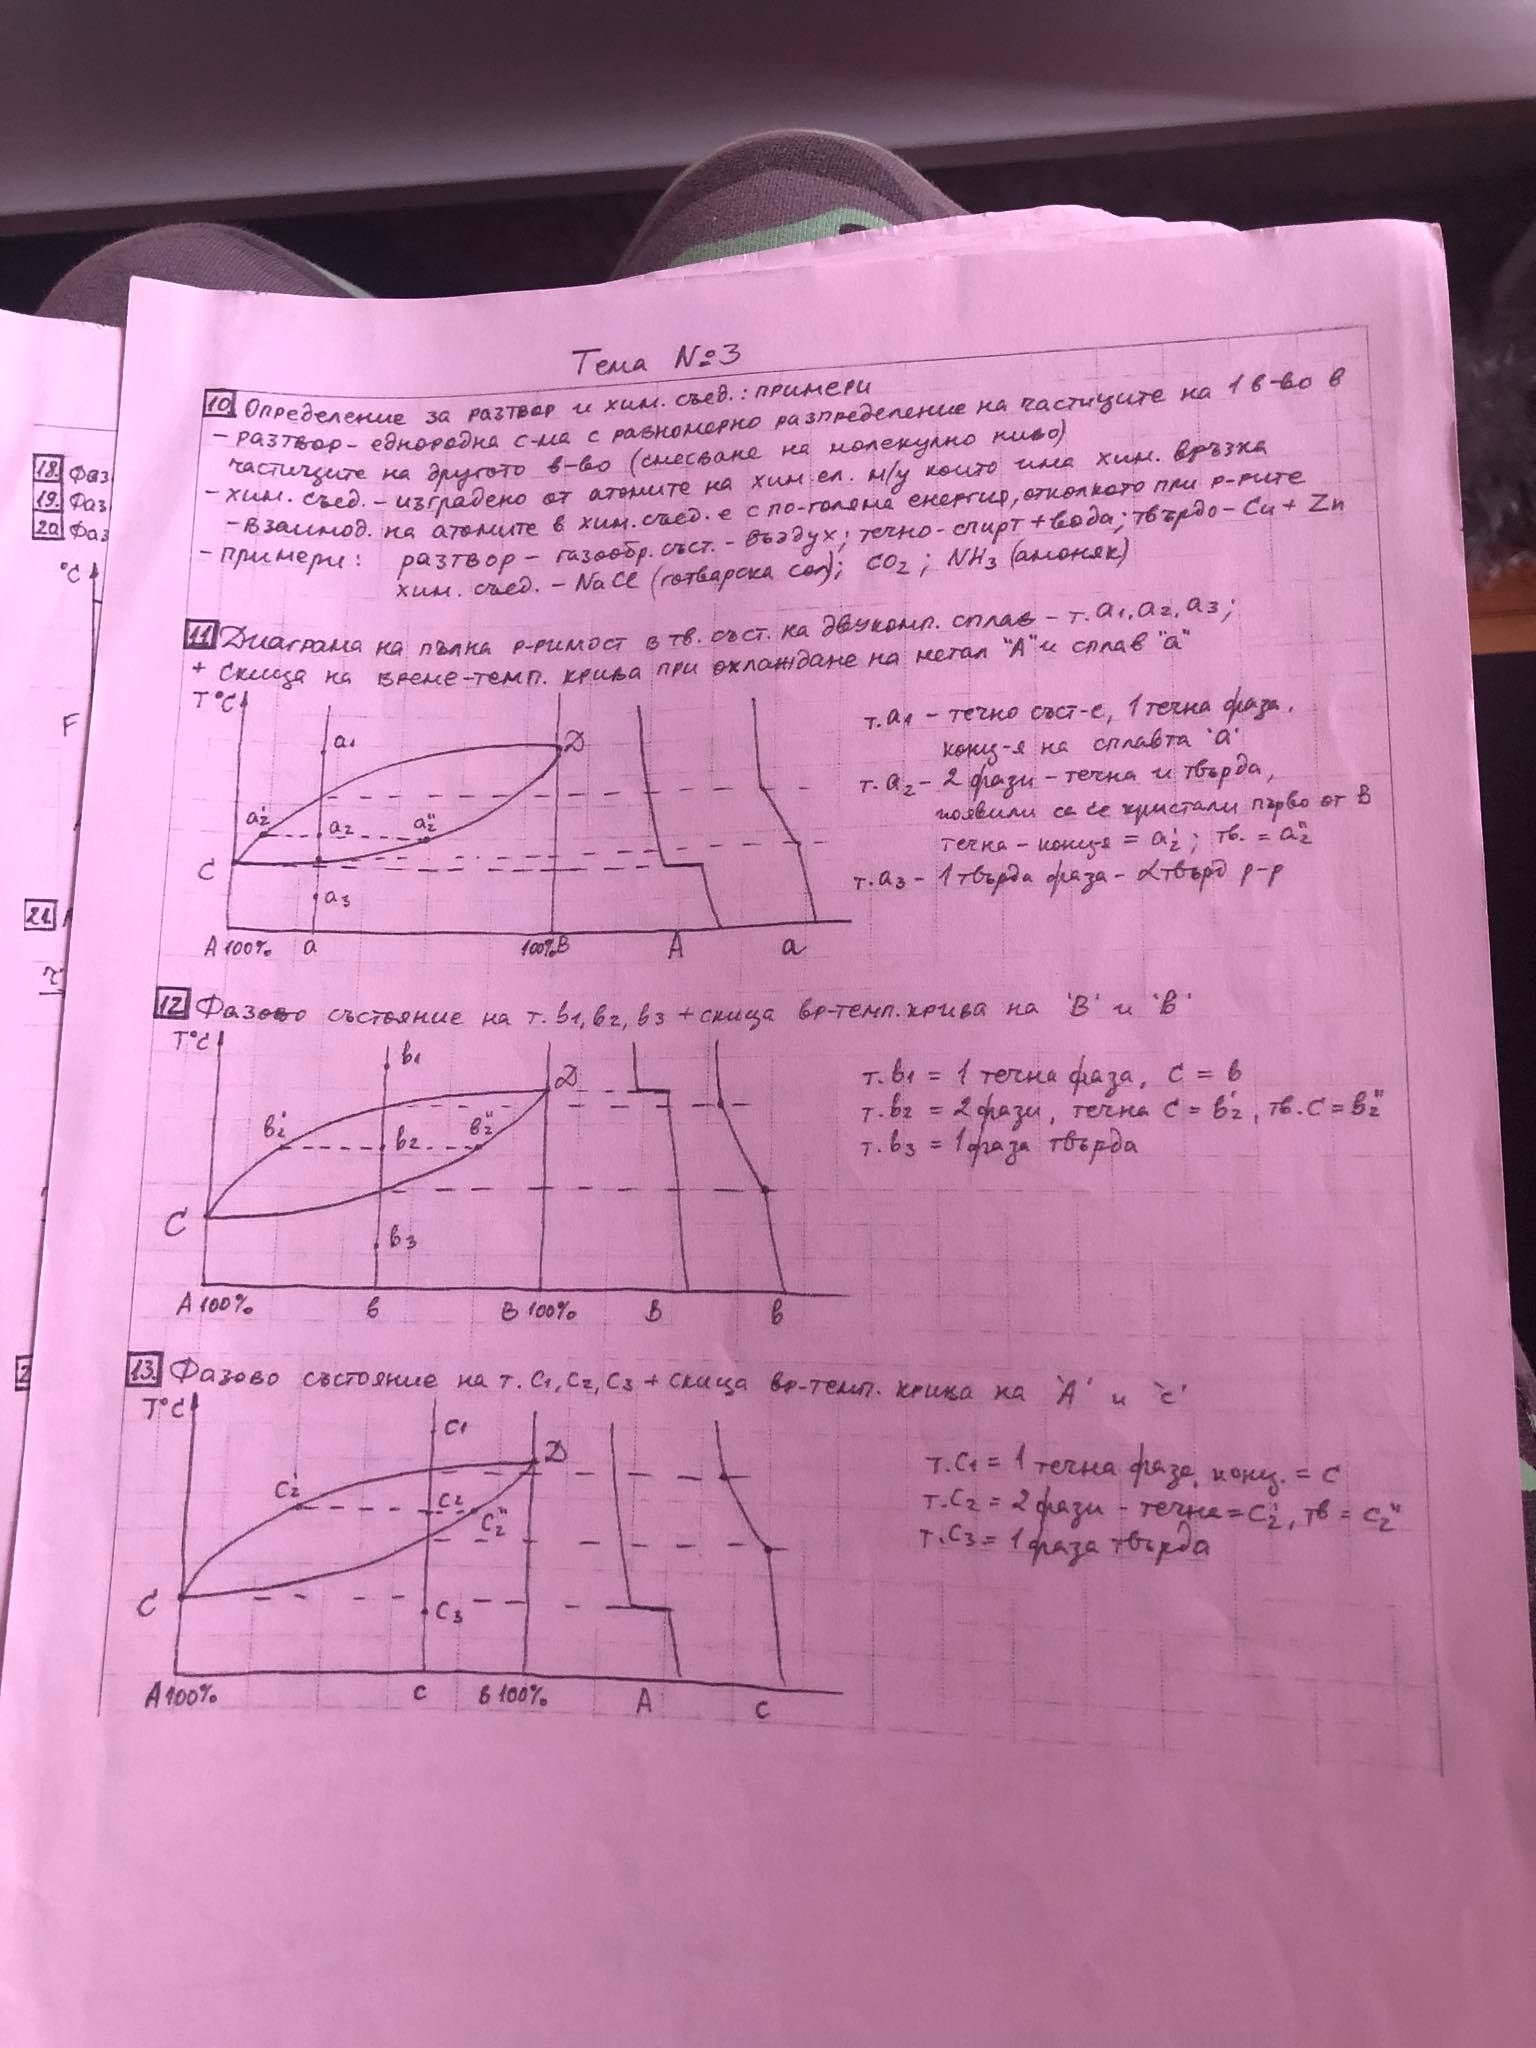 Тема №3
10 Определение за разтвор и хим. съед.: примери
- разтвор - еднородна с-ма с равномерно разпределение на частиците на 1 в-во в
частиците на другото в-во (смесване на молекулно ниво)
- хим. съед. - изградено от атомите на хим ел. м/у които има хим. връзка
- взаимод. на атомите в хим. съед. е с по-голяма енергия, отколкото при р-рите
- примери: разтвор - газообр. съст. - въздух; течно - спирт + вода; твърдо - Cu + Zn
хим. съед. - NaCl (готварска сол); CO2; NH3 (амоняк)
11 Диаграма на пълна р-римост в тв. съст. на двукомп. сплав - т. a1, a2, a3;
+ скица на време-темп. крива при охлаждане на метал "A" и сплав "a"
T°C
a1
D
a2' a2 a2"
C
a3
A 100% a 100% B A a
т. a1 - течно съст-е, 1 течна фаза,
конц-я на сплавта 'a'
т. a2 - 2 фази - течна и твърда,
появили са се кристали първо от B
течна - конц-я = a2'; тв. = a2"
т. a3 - 1 твърда фаза - α твърд р-р
12 Фазово състояние на т. в1, в2, в3 + скица вр-темп. крива на 'B' и 'в'
T°C
в1
D
в2' в2 в2"
C
в3
A 100% в B 100% B в
т. в1 = 1 течна фаза, C = в
т. в2 = 2 фази, течна C = в2', тв. C = в2"
т. в3 = 1 фаза твърда
13. Фазово състояние на т. C1, C2, C3 + скица вр-темп. крива на 'A' и 'c'
T°C
C1
D
C2' C2 C2"
C
C3
A 100% c B 100% A c
т. C1 = 1 течна фаза, конц. = C
т. C2 = 2 фази - течна = C2', тв = C2"
т. C3 = 1 фаза твърда
18. Фаз
19. Фаз
20 Фаз
°C
F
21.